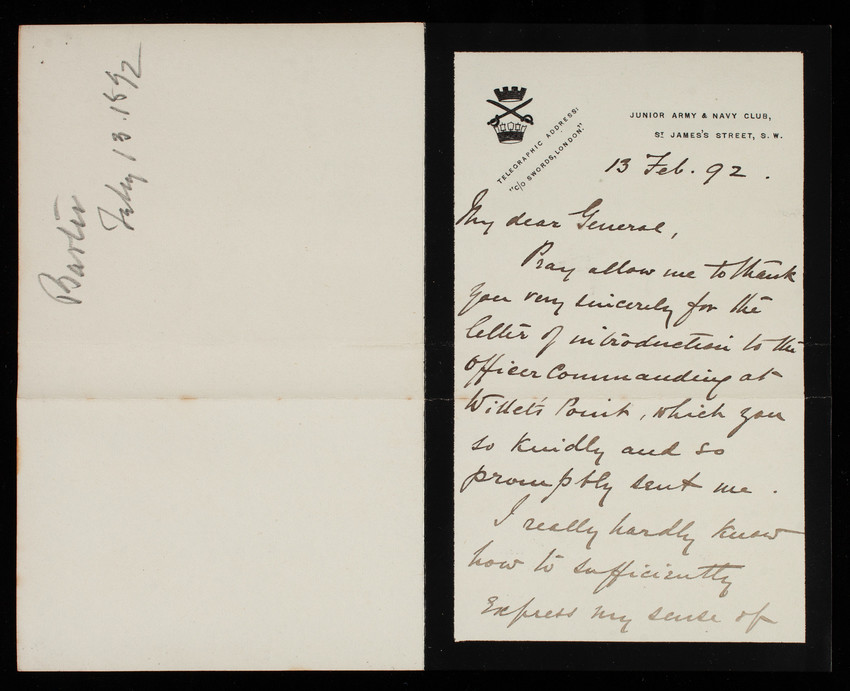 Barlin
Feby 13. 1892
TELEGRAPHIC ADDRESS:
"C/O SWORDS, LONDON."
JUNIOR ARMY & NAVY CLUB,
ST JAMES'S STREET, S. W.
13 Feb. 92.
My dear General,
Pray allow me to thank
you very sincerely for the
letter of introduction to the
Officer Commanding at
Willets Point, which you
so kindly and so
promptly sent me.
I really hardly know
how to sufficiently
express my sense of